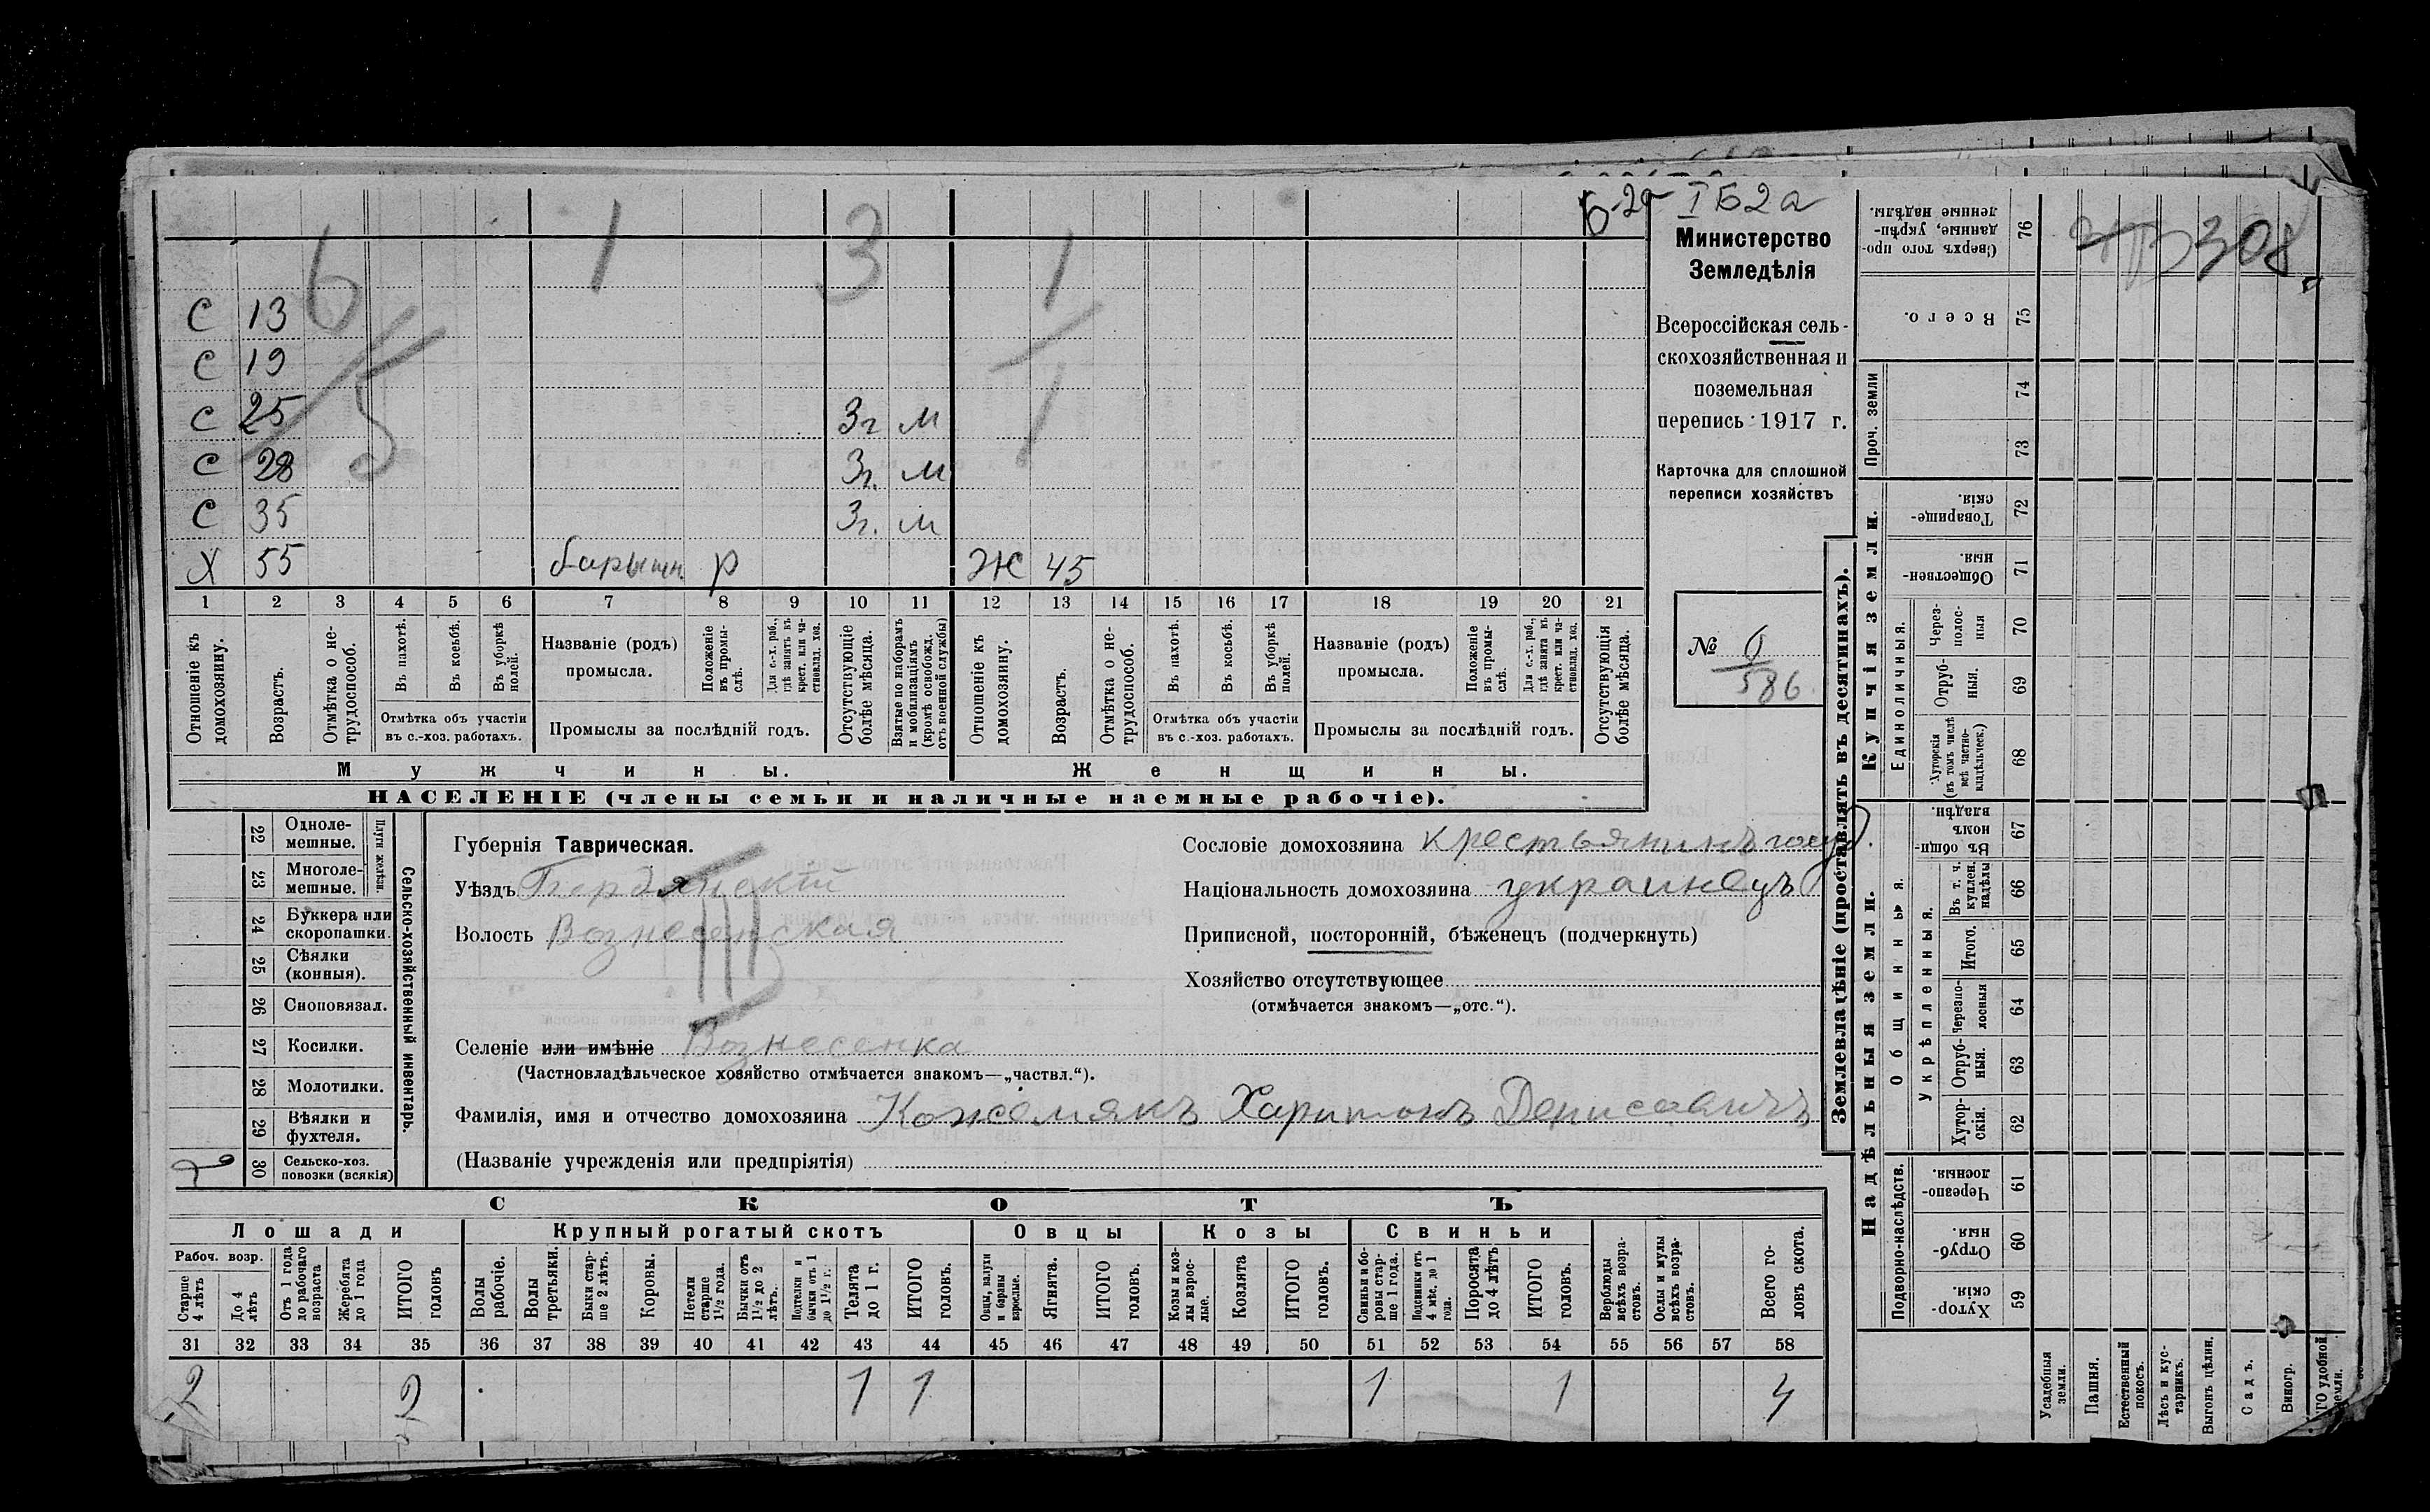 Б-2а I Б 2 а
Министерство
Земледѣлія
Всероссійская сель-
скохозяйственная и
поземельная
перепись 1917 г.
Карточка для сплошной
переписи хозяйствъ
№ 6
586
6 1 3 1
5 1
С 13
С 19
С 25 3г м
С 28 3г. м
С 35 3г. м
Х 55 барышн. р Ж 45
1 2 3 4 5 6 7 8 9 10 11 12 13 14 15 16 17 18 19 20 21
Отношеніе къ домохозяину.
Возрастъ.
Отмѣтка о не-трудоспособ.
Въ пахотѣ.
Въ косьбѣ.
Въ уборкѣ полей.
Отмѣтка объ участіи
въ с.-хоз. работахъ.
Названіе (родъ)
промысла.
Положеніе въ промы-слѣ.
Для с.-х. раб., гдѣ занятъ въ крест. или ча-стновлад. хоз.
Промыслы за послѣдній годъ.
Отсутствующіе болѣе мѣсяца.
Взятые по наборамъ и мобилизаціямъ (кромѣ освобожд. отъ военной службы)
Отношеніе къ домохозяину.
Возрастъ.
Отмѣтка о не-трудоспособ.
Въ пахотѣ.
Въ косьбѣ.
Въ уборкѣ полей.
Отмѣтка объ участіи
въ с.-хоз. работахъ.
Названіе (родъ)
промысла.
Положеніе въ промы-слѣ.
Для с.-х. раб., гдѣ занята въ крест. или ча-стновлад. хоз.
Промыслы за послѣдній годъ.
Отсутствующія болѣе мѣсяца.
Мужчины. Женщины.
НАСЕЛЕНІЕ (члены семьи и наличные наемные рабочіе).
Сельско-хозяйственный инвентарь.
Плуги желѣзн.
22 Одноле-мешные.
23 Многоле-мешные.
24 Буккера или скоропашки.
25 Сѣялки (конныя).
26 Сноповязал.
27 Косилки.
28 Молотилки.
29 Вѣялки и фухтеля.
30 Сельско-хоз. повозки (всякія)
Губернія Таврическая.
Уѣздъ Бердянскій
Волость Вознесенская
III
Селеніе или имѣніе Вознесенка
(Частновладѣльческое хозяйство отмѣчается знакомъ—„частвл.“).
Фамилія, имя и отчество домохозяина Кожемякъ Харитонъ Денисовичъ
(Названіе учрежденія или предпріятія)
Сословіе домохозяина крестьянинъ госуд.
Національность домохозяина украинецъ
Приписной, посторонній, бѣженецъ (подчеркнуть)
Хозяйство отсутствующее
(отмѣчается знакомъ—„отс.“).
СКОТЪ
Лошади Крупный рогатый скотъ Овцы Козы Свиньи
Рабоч. возр.
Старше 4 лѣтъ
До 4 лѣтъ
Отъ 1 года до рабочаго возраста
Жеребята до 1 года
ИТОГО головъ
Волы рабочіе.
Волы третьяки.
Быки стар-ше 2 лѣтъ.
Коровы.
Нетели старше 1½ года.
Бычки отъ 1½ до 2 лѣтъ.
Подтелки и бычки отъ 1 до 1½ г.
Телята до 1 г.
ИТОГО головъ.
Овцы, валухи и бараны взрослые.
Ягнята.
ИТОГО головъ.
Козы и коз-лы взрос-лые.
Козлята
ИТОГО головъ.
Свиньи и бо-ровы стар-ше 1 года.
Подсвинки отъ 4 мѣс. до 1 года.
Поросята до 4 лѣтъ
ИТОГО головъ.
Верблюды всѣхъ возра-стовъ.
Ослы и мулы всѣхъ возра-стовъ.
Всего го-ловъ скота.
31 32 33 34 35 36 37 38 39 40 41 42 43 44 45 46 47 48 49 50 51 52 53 54 55 56 57 58
2 2 1 1 1 1 4
Землевладѣніе (проставлять въ десятинахъ).
308
76 Сверхъ того про-данные, укрѣп-ленные надѣлы.
75 Всего.
Проч. земли
74
73
Купчія земли.
72 Товарище-скія.
71 Обществен-ныя.
Единоличныя.
70 Через-полос-ныя
69 Отруб-ныя.
68 Хуторскія (въ томъ числѣ всѣ частно-владѣльческ.)
Надѣльныя земли.
Общинныя.
67 Въ общи-номъ владѣн.
Укрѣпленныя.
66 Въ т. ч. куплен. надѣлы
65 Итого.
64 Черезпо-лосныя
63 Отруб-ныя.
62 Хутор-скія.
Подворно-наслѣдств.
61 Черезпо-лосныя.
60 Отруб-ныя.
59 Хутор-скія.
Усадебныя земли.
Пашня.
Естественный покосъ.
Лѣсъ и кус-тарникъ.
Выгонъ цѣлин.
Садъ.
Виногр.
удобной земли.